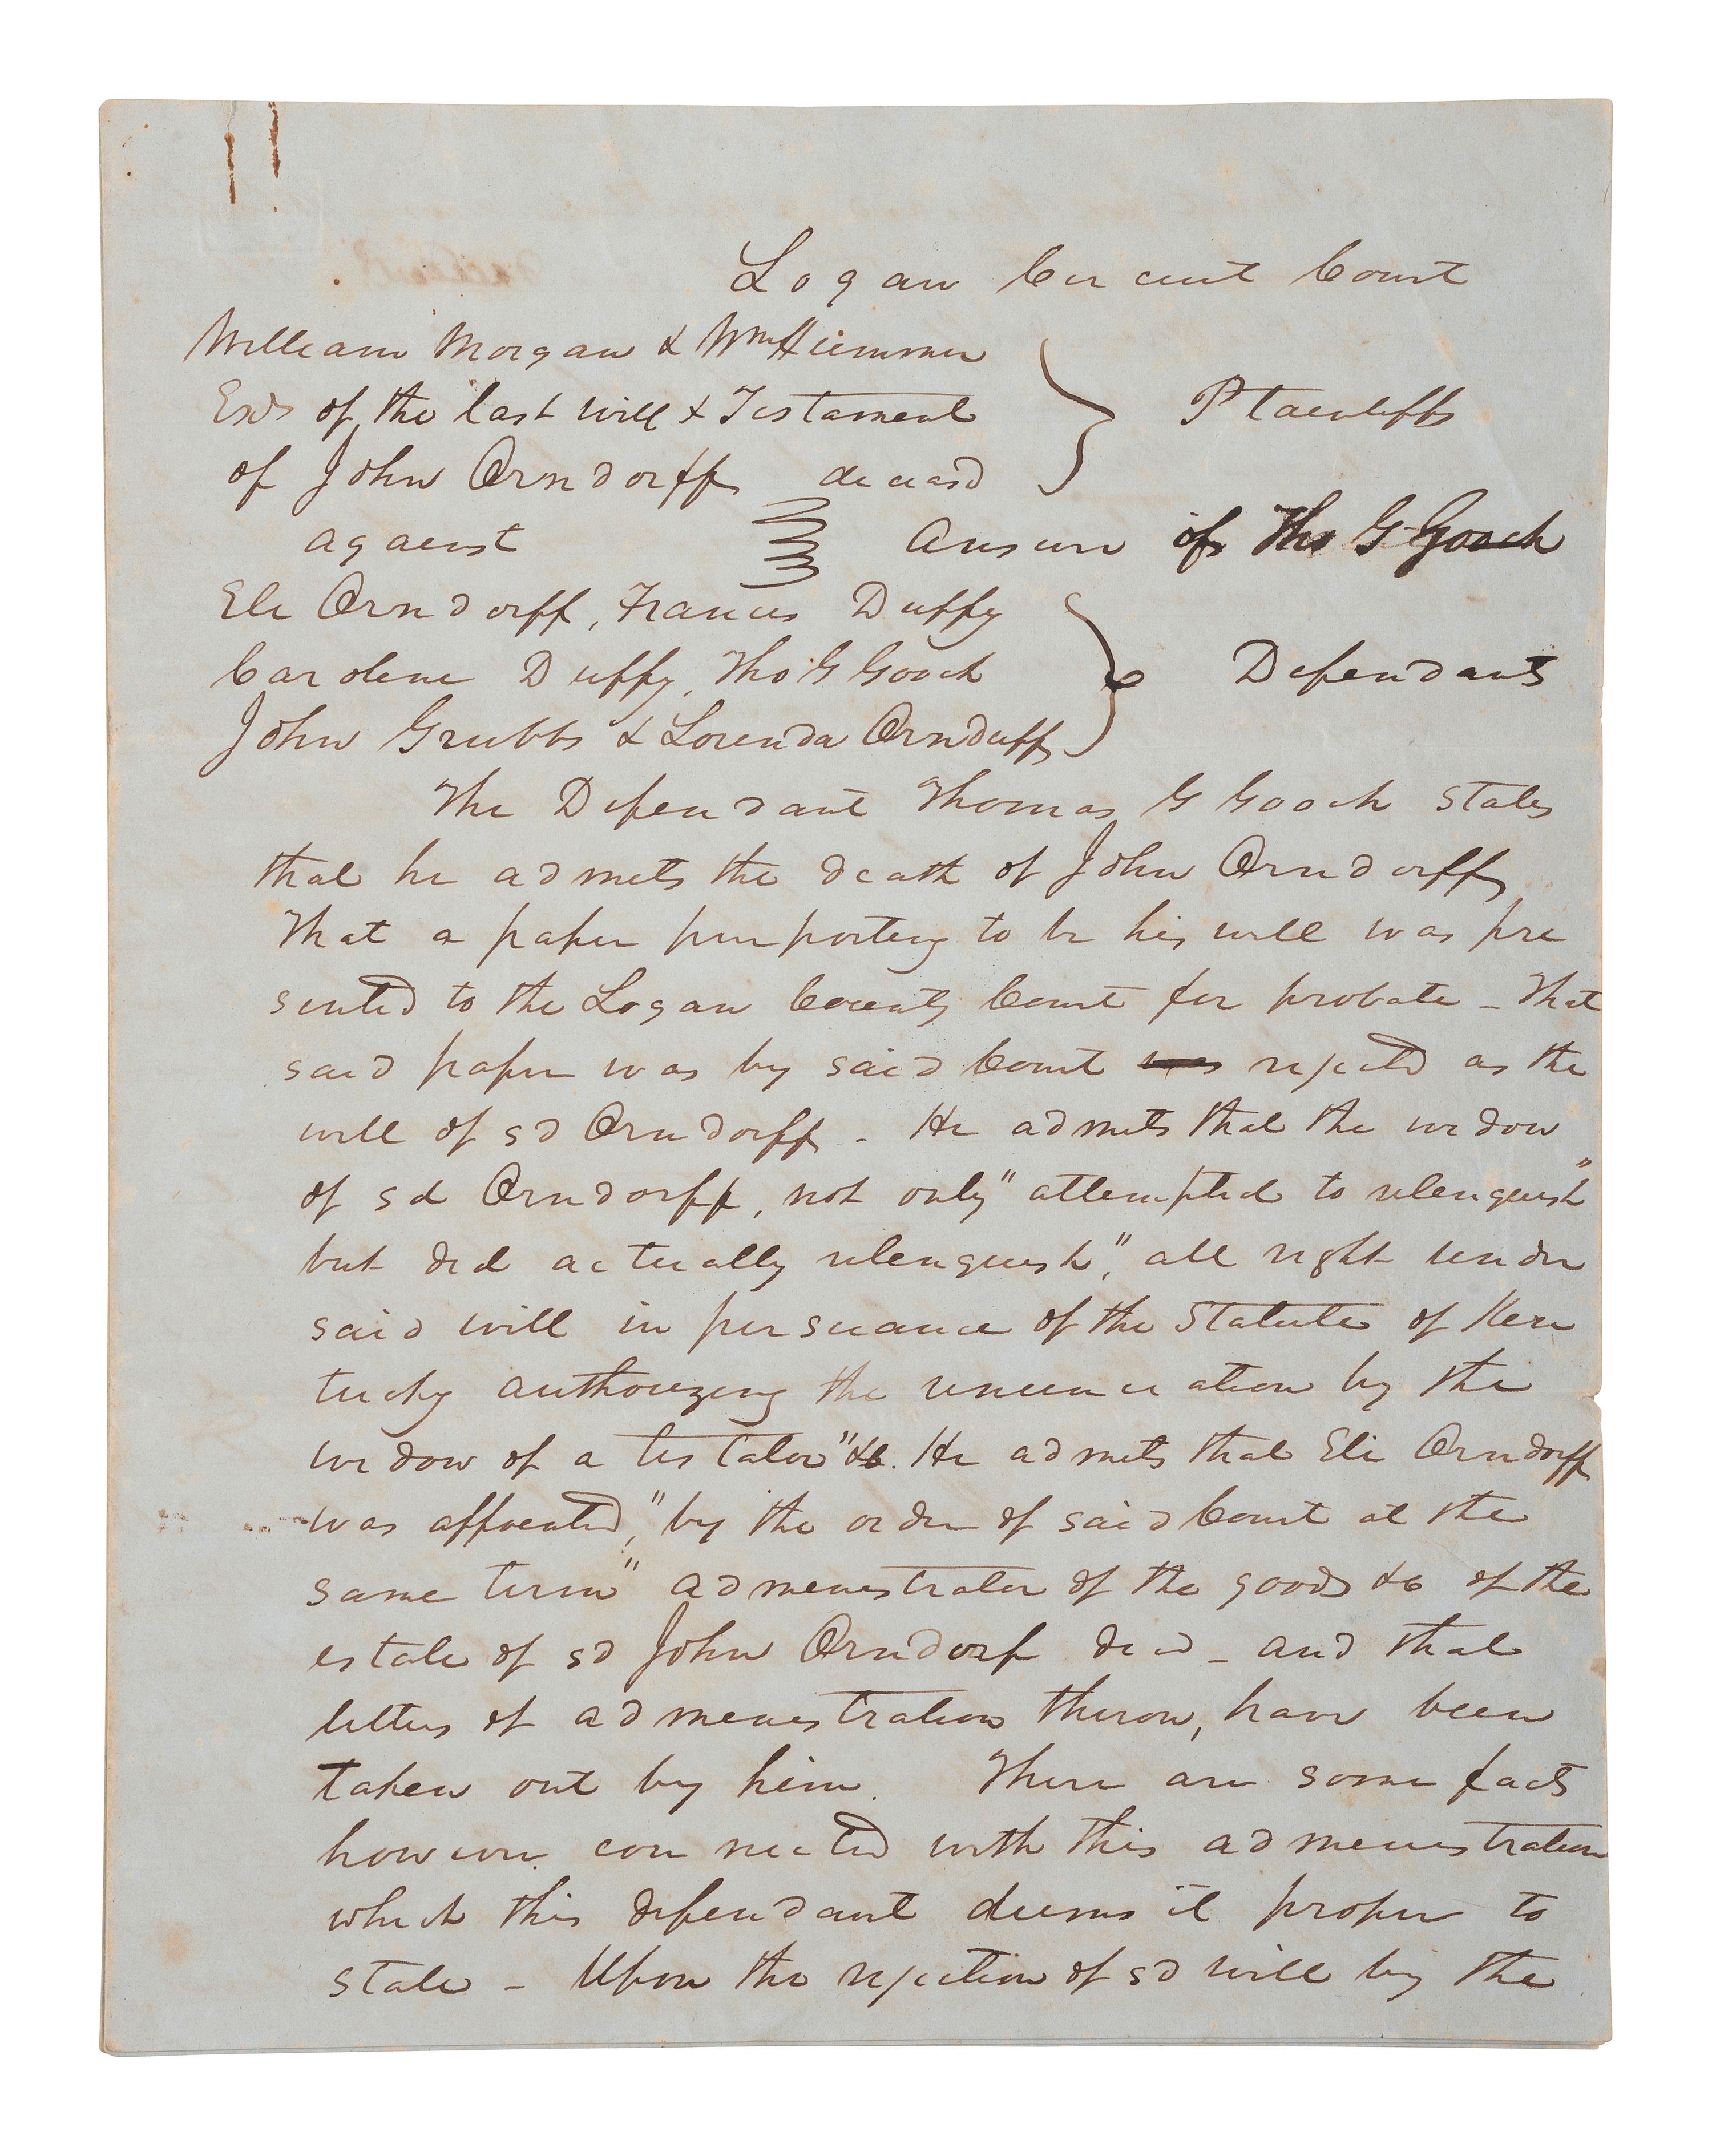 Logan Circuit Court
William Morgan & Wm
Exrs of the last will & Testament
Plaintiffs
of John Orndorff deceasd
against
Answer of Tho G Gooch
Eli Orndorff, Frances Duffy
Caroline Duffy, Tho G Gooch
Defendants
John Grubbs & Lorenda Orndurff
The Defendant Thomas G Gooch states
that he admits the death of John Orndorff
That a paper purporting to be his will was pre
sented to the Logan County Court for probate - That
said paper was by said Court was rejected as the
will of sd Orndorff - He admits that the widow
of sd Orndorff, not only "attempted to relenquish"
but did actually relenquish", all right under
said will in pursuance of the Statute of Ken
tucky authorizing the renunciation by the
widow of a testator" &c. He admits that Eli Orndorff
was appointed, "by the order of said Court at the
same term" administrator of the goods &c of the
estate of sd John Orndorf decd - and that
letters of administration theron, have been
taken out by him. There are some facts
however connected with this administration
which this defendant deems it proper to
state - Upon the rejection of sd will by the